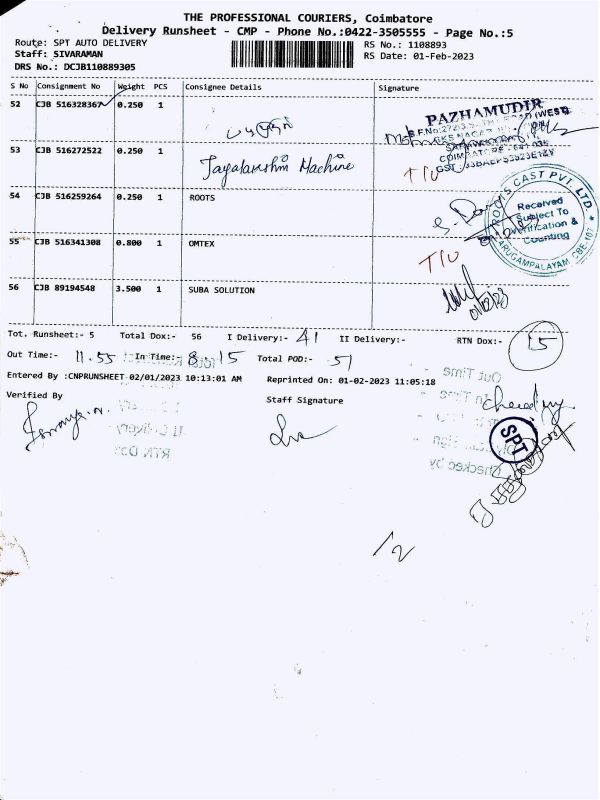 THE PROFESSIONAL COURIERS, Coimbatore
Delivery Runsheet - CMP - Phone No.:0422-3505555 - Page No.:5
Route: SPT AUTO DELIVERY
RS No.: 1108893
Staff: SIVARAMAN
RS Date: 01-Feb-2023
DRS No.: DCJB110889305
S No Consignment No Weight PCS Consignee Details Signature
52 CJB 516328367 0.250 1
PAZHAMUDIR
53 CJB 516272522 0.250 1 Jayalakshmi Machine
T/U
54 CJB 516259264 0.250 1 ROOTS
ROOTS CAST PVT. LTD.
Received
Subject To
Verification &
Counting
ARUGAMPALAYAM, CBE-107
55 CJB 516341308 0.800 1 OMTEX
T/U
56 CJB 89194548 3.500 1 SUBA SOLUTION
01/02/23
Tot. Runsheet:- 5 Total Dox:- 56 I Delivery:- 41 II Delivery:- RTN Dox:- 15
Out Time:- 11.55 In Time:- 8.15 Total POD:- 51
Entered By :CNPRUNSHEET 02/01/2023 10:13:01 AM Reprinted On: 01-02-2023 11:05:18
Verified By
Staff Signature
Out Time -
In Time -
II Delivery
RTN Dox
SPT
Checked by